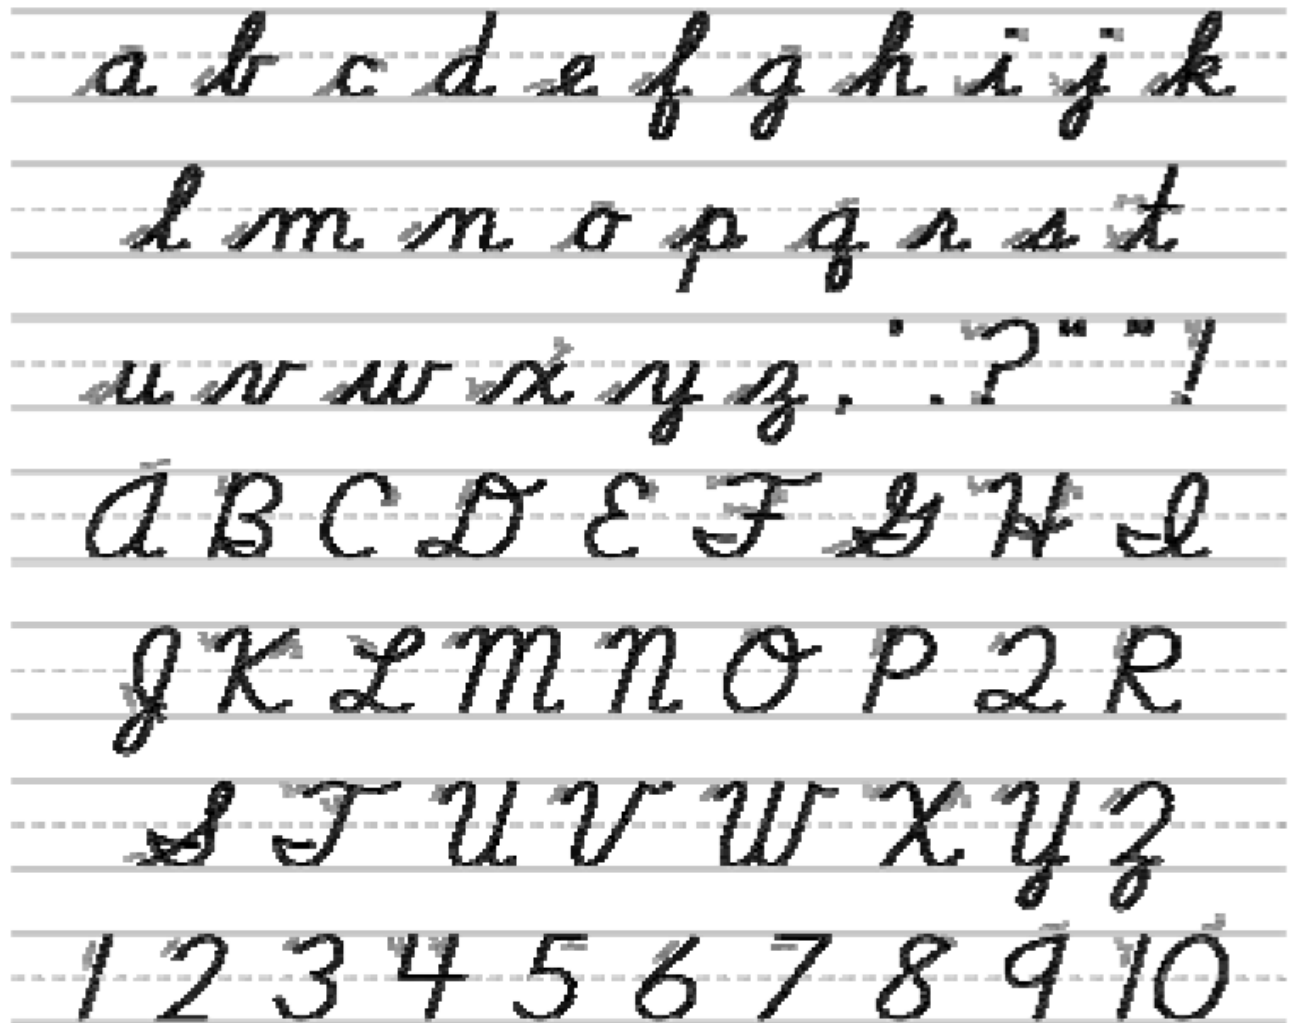 a b c d e f g h i j k
l m n o p q r s t
u v w x y z , ' . ? " " !
A B C D E F G H I
J K L M N O P Q R
S T U V W X Y Z
1 2 3 4 5 6 7 8 9 10